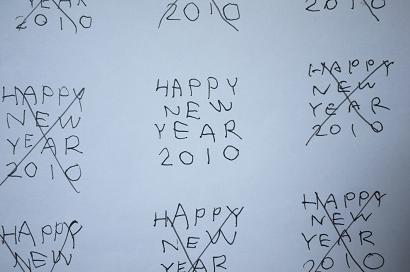 YEAR
2010
2010
2010
HAPPY
NEW
YEAR
2010
HAPPY
NEW
YEAR
2010
HAPPY
NEW
YEAR
2010
HAPPY
NEW
HAPPY
NEW
YEAR
HAPPY
NEW
YEAR
2010